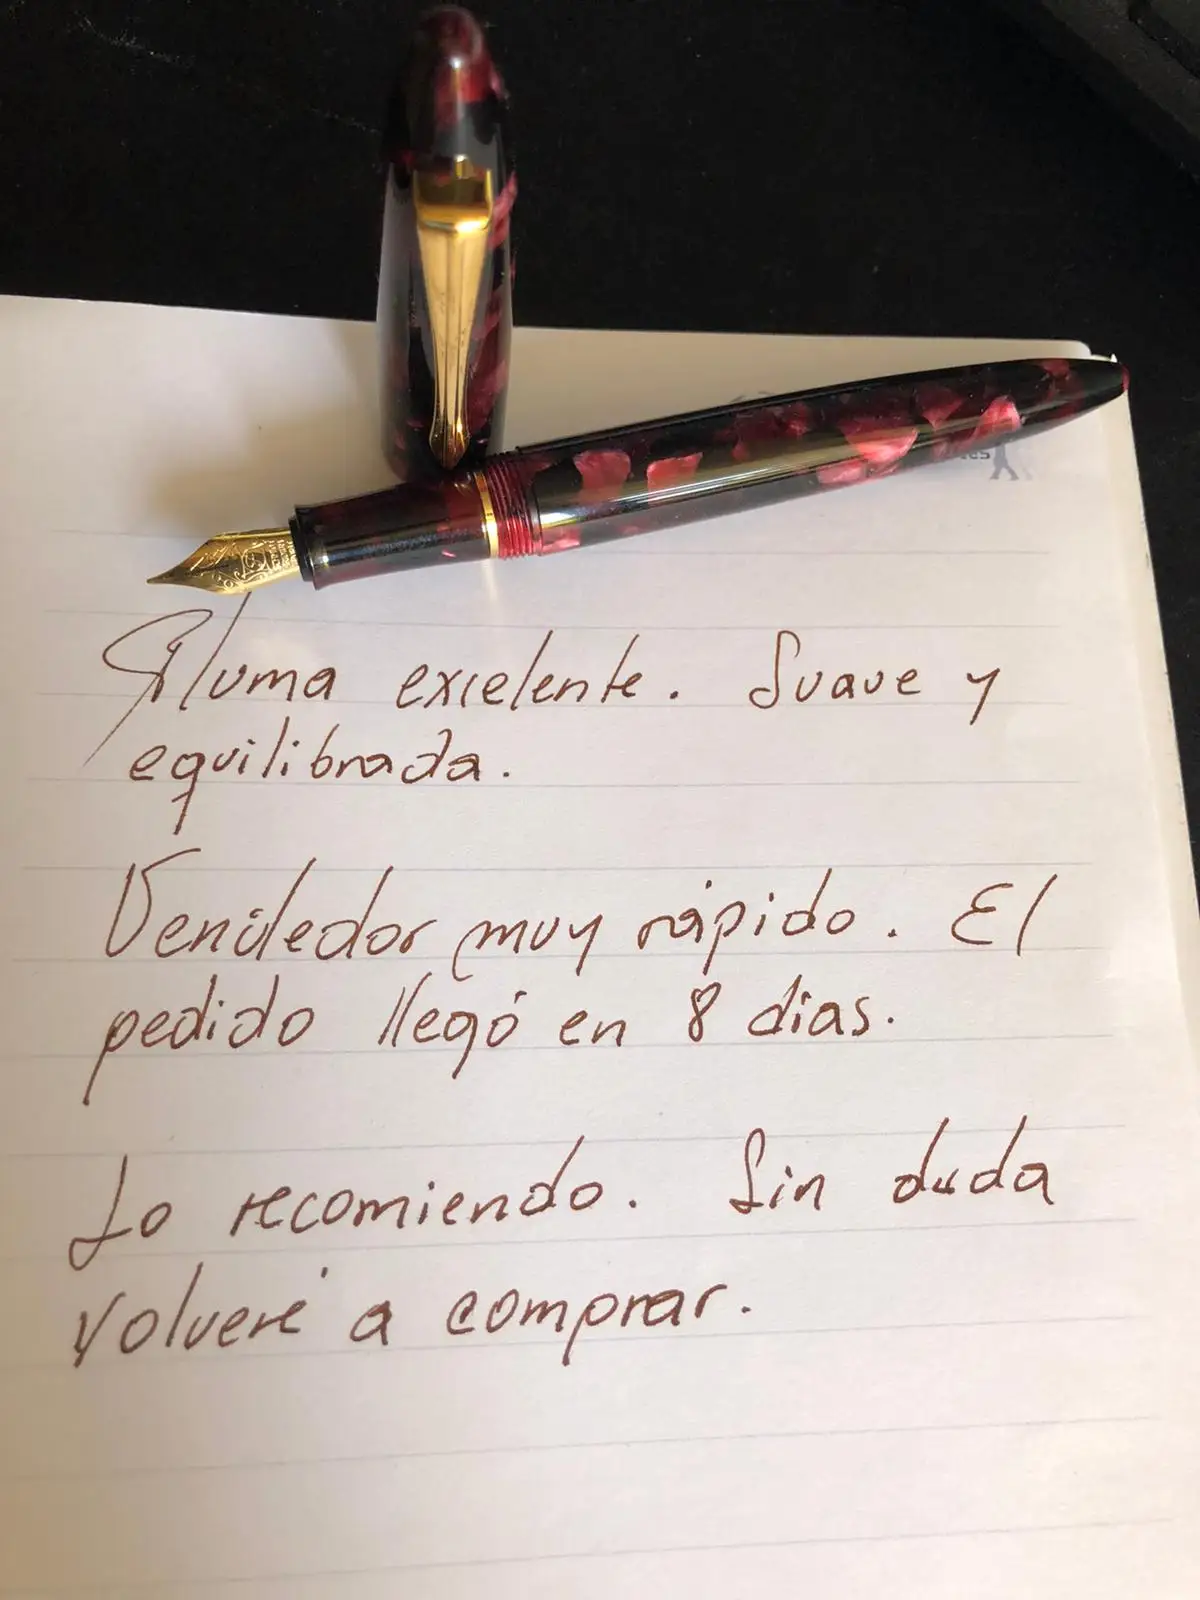 Pluma excelente. Suave y
equilibrada.
Vendedor muy rápido. El
pedido llegó en 8 dias.
Lo recomiendo. Sin duda
volveré a comprar.